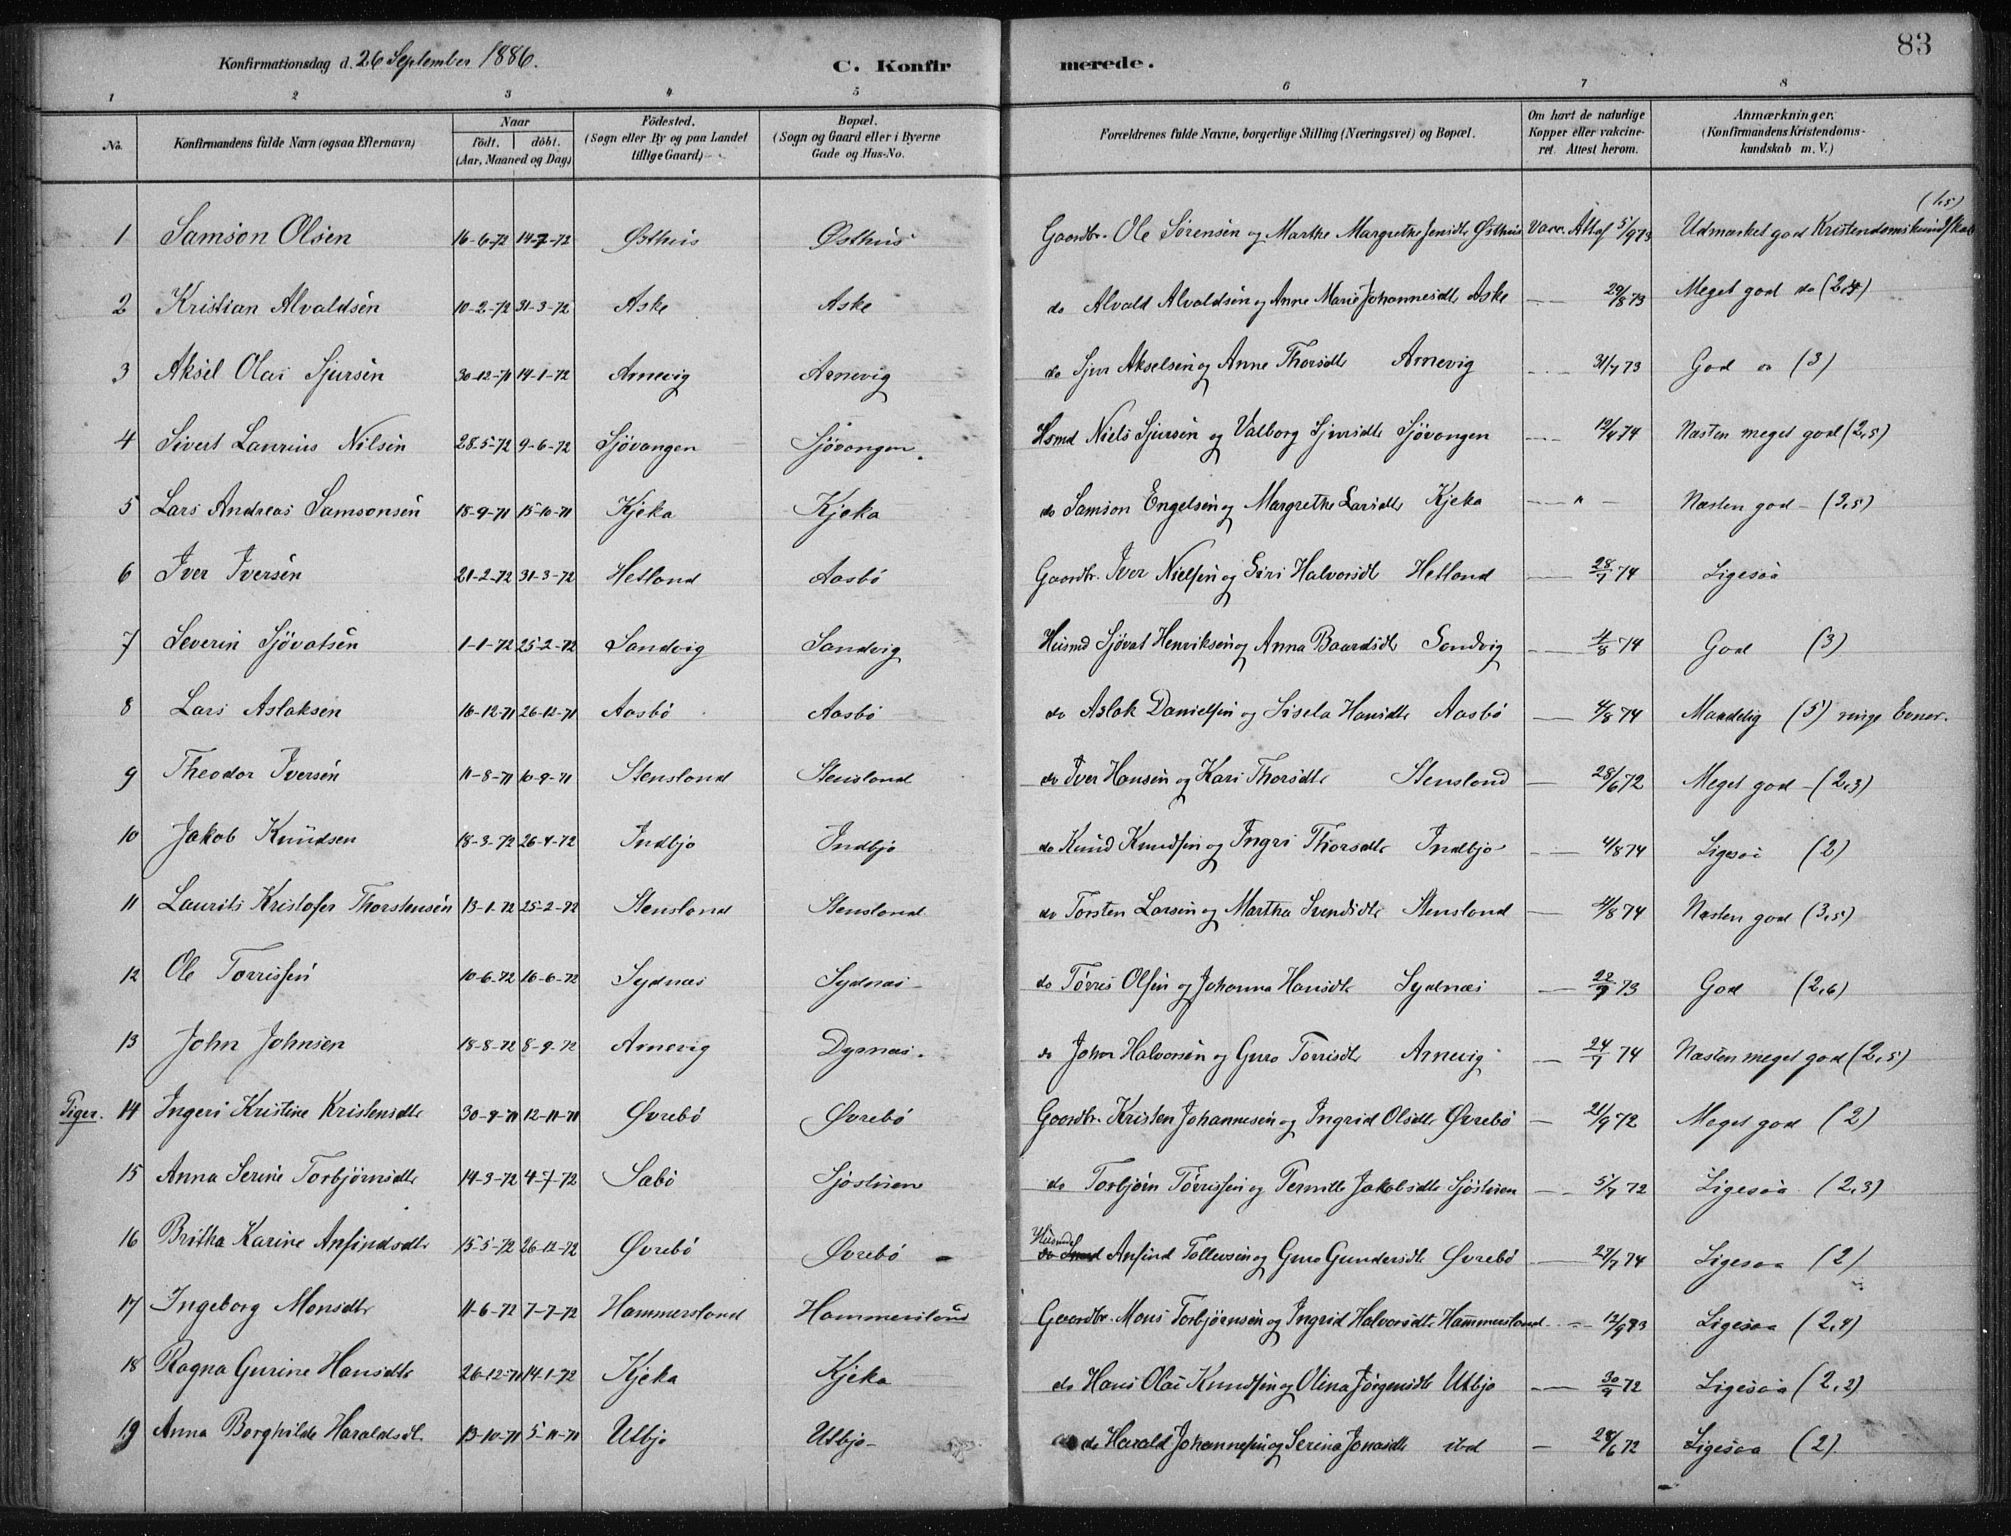 83
Konfirmationsdag d. 26 September 1886.
C. Konfirmerede.
1 2 3 4 5 6 7 8
No. Konfirmandens fulde Navn (ogsaa Efternavn) Naar födt. döbt. (Aar, Maaned og Dag) Födested. (Sogn eller By og paa Landet tillige Gaard) Bopæl. (Sogn og Gaard eller i Byerne Gade og Hus-No. Forældrenes fulde Navne, borgerlige Stilling (Næringsvei) og Bopæl. Om havt de naturlige Kopper eller vakcineret. Attest herom. Anmærkninger. (Konfirmandens Kristendomskundskab m. V.)
1 Samson Olsen 16-6-72 14-7-72 Østhus Østhus Gaardbr. Ole Sørensen og Marthe Margrethe Jensdtr Østhus Vacc. Att af 5/9 73 Udmærket god Kristendomskundskab (1,5)
2 Kristian Alvaldsen 10-2-72 31-3-72 Aske Aske do Alvald Alvaldsen og Anne Marie Johannesdtr Aske 29/8 73 Meget god do
3 Aksel Olai Sjursen 30-12-71 14-1-72 Arnevig Arnevig do Sjur Akselsen og Anne Thorsdtr Arnevig 31/7 73 God (3)
4 Sivert Laurius Nilsen 28-5-72 9-6-72 Sjövangen Sjövangen Hsmd Niels Sjursen og Valborg Sjursdtr Sjövangen 12/4 74 Næsten meget god (2,5)
5 Lars Andreas Samsonsen 18-9-71 15-10-71 Kjeka Kjeka do Samson Engelsen og Margrethe Larsdtr Kjeka " Næsten god - (3,5)
6 Iver Iversen 21-2-72 31-3-72 Hetland Aasbö Gaardbr. Iver Nielsen og Siri Halvorsdt Hetland 28/7 74 Ligesaa
7 Severin Sjövatsen 1-1-72 25-2-72 Sandvig Sandvig Husmd Sjövat Henriksen og Anna Baardsdtr Sandvig 4/8 74 God (3)
8 Lars Aslaksen 16-12-71 26-12-71 Aasbö Aasbö do Aslak Danielsen og Sisela Hansdtr Aasbö 4/8 74 Maadelig (5) ringe Evner.
9 Theodor Iversen 11-8-71 10-9-71 Stensland Stensland do Iver Hansen og Kari Thorsdtr Stensland 28/6 72 Meget god - (2,3)
10 Jakob Knudsen 18-3-72 26-4-72 Indbjo Indbjo do Knud Knudsen og Ingri Thorsdtr Indbjo 4/8 74 Ligesaa (2)
11 Laurits Kristofer Thorstensen 13-1-72 25-2-72 Stensland Stensland do Torsten Larsen og Martha Svendsdtr Stensland 4/8 74 Næsten god (3,5)
12 Ole Torrissen 10-6-72 16-6-72 Sydnæs Sydnæs do Törres Olsen og Johanna Hansdtr Sydnæs 73 God (2,6)
13 John Johnsen 18-8-72 8-9-72 Arnevig Dyrnæs. do John Halvorsen og Guro Torrisdtr Arnevig 24/7 74 Næsten meget god (2,5)
Piger. 14 Ingeri Kristine Kristensdtr 30-9-71 12-11-71 Øvrebö Øvrebö Gaardbr. Kristen Johannesen og Ingrid Olsdtr Øvrebö 21/9 72 Meget god (2)
15 Anna Serine Torbjörnsdtr 14-3-72 4-7-72 Sæbö Sjöstuen do Torbjörn Törrissen og Pernille Jakobsdtr Sjöstuen 5/7 72 Ligesaa (2,3)
16 Britha Karine Anfindsdtr 15-5-72 26-12-72 Øvrebö Øvrebö Husmd Anfind Tollevsen og Guro Gundersdtr Øvrebö 27/7 74 Ligesaa (2)
17 Ingeborg Monsdtr 11-6-72 7-7-72 Hammersland Hammersland Gaardbr. Mons Torbjörnsen og Ingrid Halvorsdtr Hammersland 12/9 73 Ligesaa
18 Ragna Gurine Hansdtr 26-12-71 14-1-72 Kjeka Kjeka do Hans Olai Knudsen og Olina Jörgensdtr Utbjo 72 Ligesaa (2,2)
19 Anna Borghilde Haraldsdt. 13-10-71 5-11-71 Utbjo Utbjo do Harald Johannesen og Serina Jonasdtr ibd 28/6 72 Ligesaa (2)